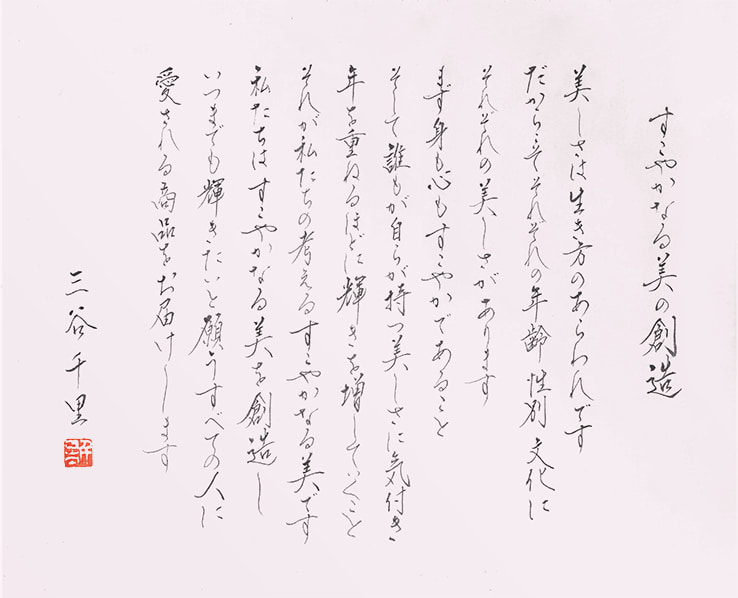 すこやかなる美の創造
美しさは生き方のあらわれです
だからこそそれぞれの年齢 性別 文化に
それぞれの美しさがあります
まず身も心もすこやかであること
そして誰もが自らが持つ美しさに気付き
年を重ねるほどに輝きを増していくこと
それが私たちの考えるすこやかなる美です
私たちはすこやかなる美を創造し
いつまでも輝きたいと願うすべての人に
愛される商品をお届けします
三谷千里